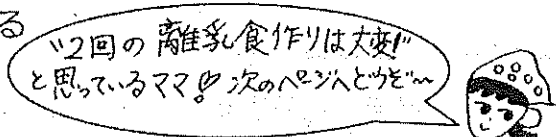 る
"2回の離乳食作りは大変!"
と思っているママ!! 次のページへどうぞ〜